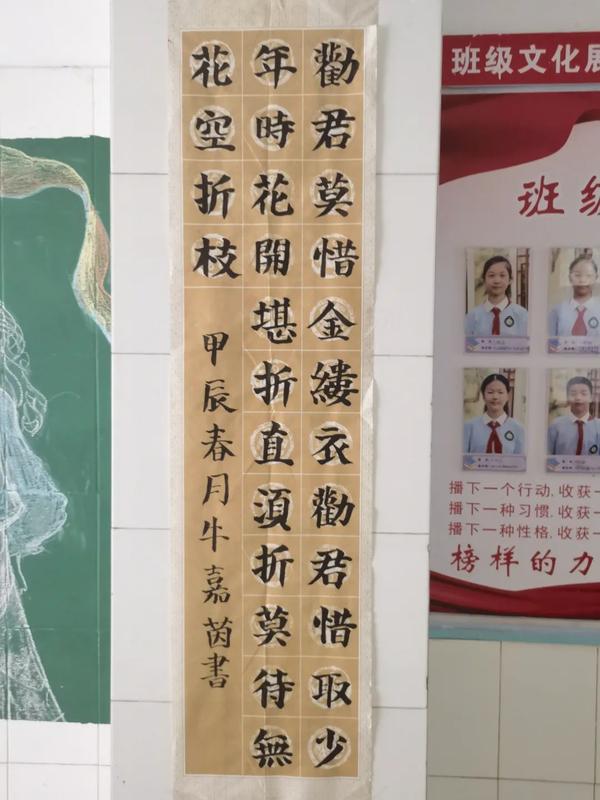 勸君莫惜金縷衣勸君惜取少
年時花開堪折直須折莫待無
花空折枝
甲辰春月牛嘉茵書
班级文化展
班级
播下一个行动,收获一
播下一种习惯,收获一
播下一种性格,收获一
榜样的力